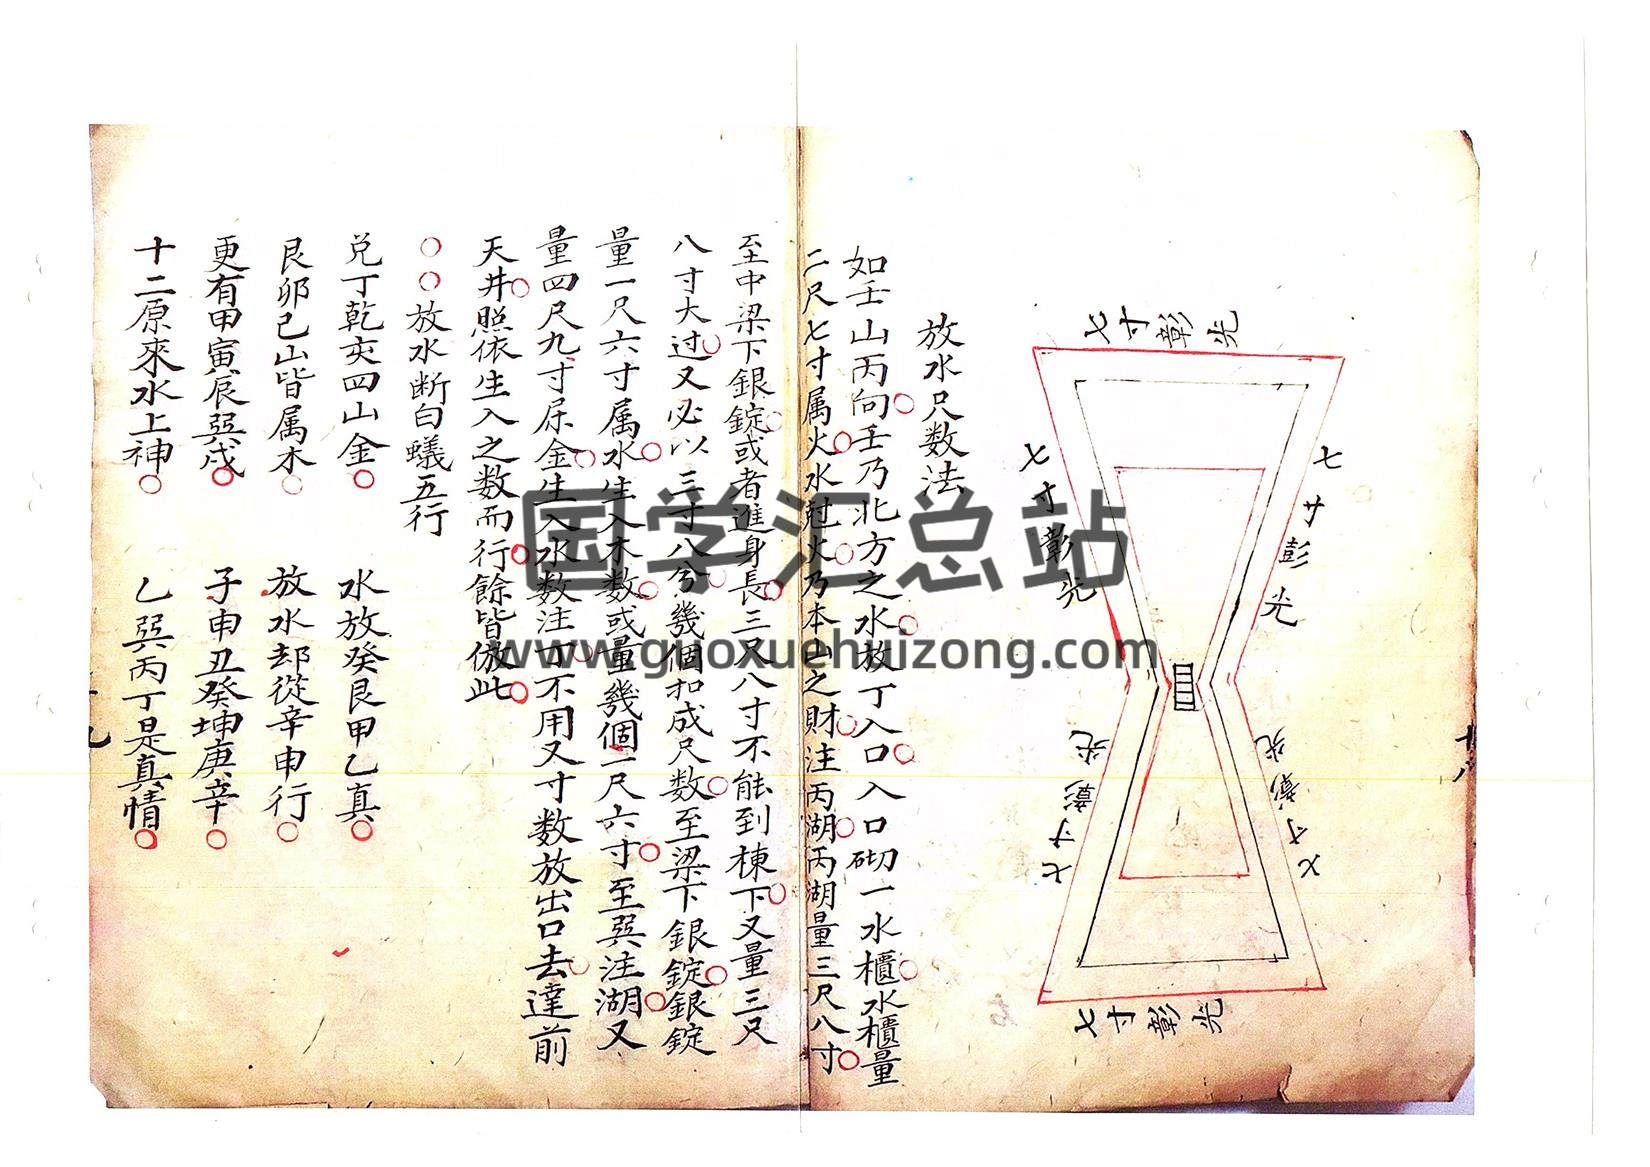 七寸彰光
七寸彭光
七寸彰光
七寸彰光
七寸彰光
七寸彰光
十八
放水尺数法
如壬山丙向壬乃北方之水放丁入口入口砌一水櫃水櫃量
二尺七寸属火水尅火乃本山之財注丙湖丙湖量三尺八寸
至中梁下銀錠或者進身長三尺八寸不能到棟下又量三尺
八寸大过又必以三寸八分幾個扣成尺数至梁下銀錠銀錠
量一尺六寸属水生入木数或量幾個一尺六寸至巽注湖又
量四尺九寸属金生入水数注可不用又寸数放出口去達前
天井照依生入之数而行餘皆倣此
放水断白蟻五行
兑丁乾亥四山金 水放癸艮甲乙真
艮卯巳山皆属木 放水却從辛申行
更有甲寅辰巽戌 子申丑癸坤庚辛
十二原來水上神 乙巽丙丁是真情
十九
国学汇总站
www.guoxuehuizong.com